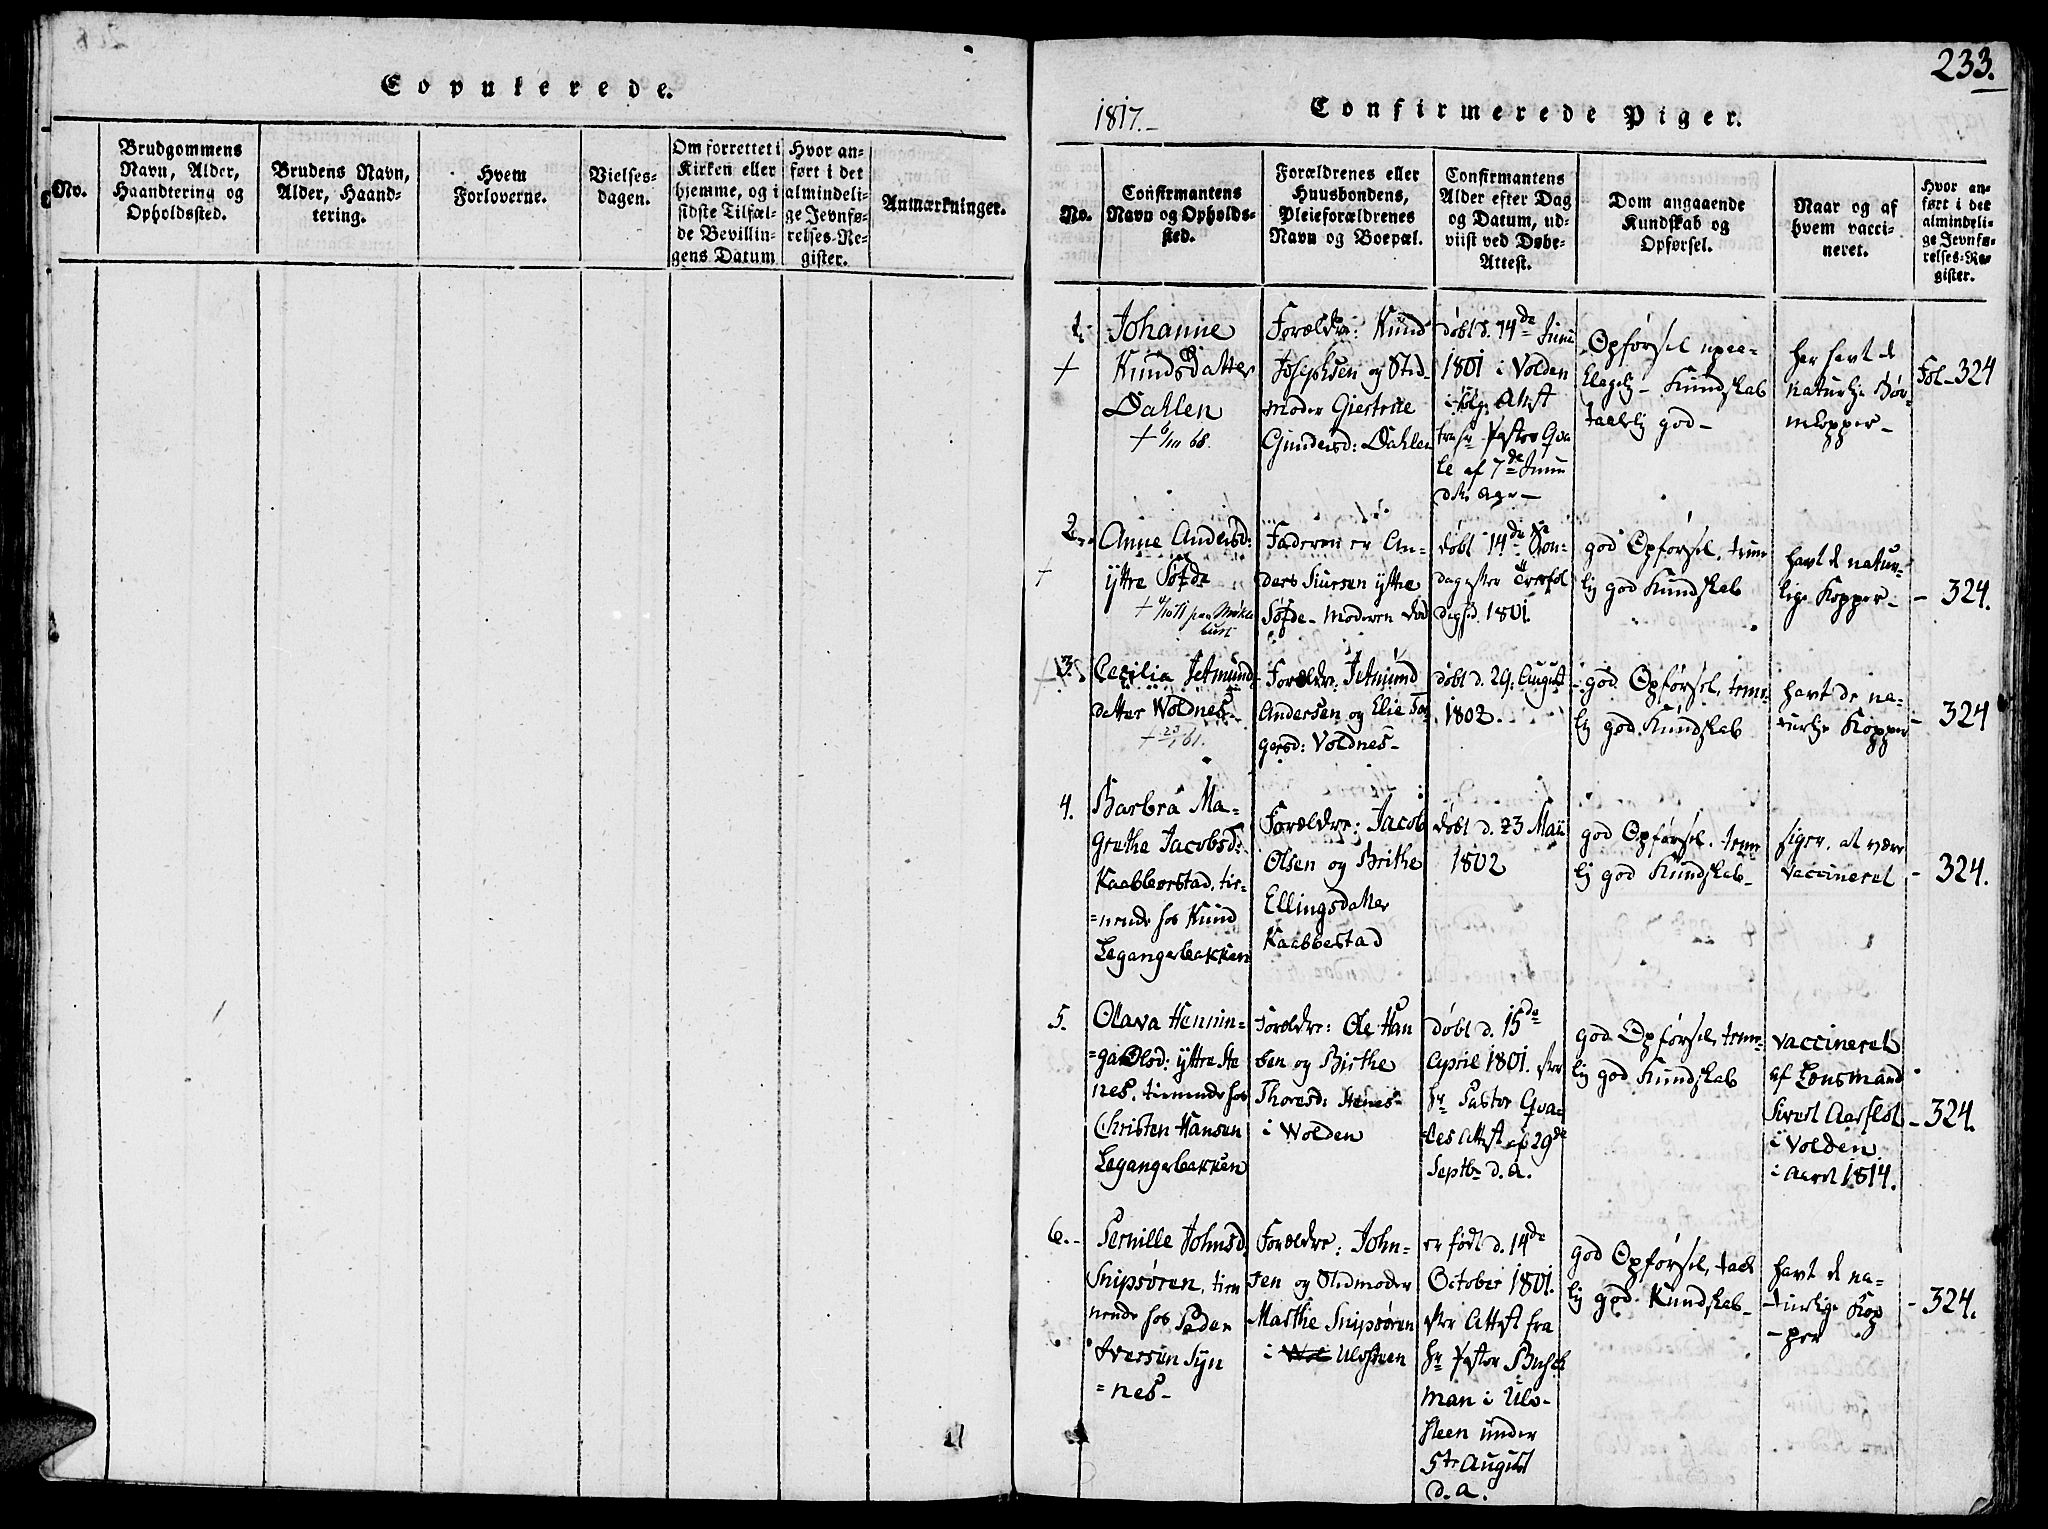 Copulerede.
No.
Brudgommens
Navn, Alder,
Haandtering og
Opholdssted.
Brudens Navn,
Alder, Haand-
tering.
Hvem
Forloverne.
Vielses-
dagen.
Om forrettet i
Kirken eller
hjemme, og i
sidste Tilfæl-
de Bevillin-
gens Datum
Hvor an-
ført i det
almindeli-
ge Jevnfø-
relses-Re-
gister.
Anmærkninger.
233.
1817.-
Confirmerede Piger.
No.
Confirmantens
Navn og Opholds-
sted.
Forældrenes eller
Huusbondens,
Pleieforældrenes
Navn og Boepæl.
Confirmantens
Alder efter Dag
og Datum, ud-
viist ved Døbe-
Attest.
Dom angaaende
Kundskab og
Opførsel.
Naar og af
hvem vacci-
neret.
Hvor an-
ført i det
almindeli-
ge Jevnfø-
relses-Re-
gister.
1.
+
Johanne
Knudsdatter
Dahlen
+ 6/10 68.
Forældre: Knud
Josephsen og Sted-
moder Giertrue
Gundersd: Dahlen
døbt d. 14de Junii
1801 i Volden
ifølge Attest
fra Hr Pastor Qva
le af 7de Junii
Opførsel upaa-
klagelig - Kundskab
taalelig god -
har havt de
naturlige Bør-
nekopper -
Fol - 324
2.
+
Anne Andersd:
yttre Søfde
Faderen er An-
ders Siursen yttre
Søfde - Moderen død
døbt 14de Søn-
dag efter Trefol
digh. 1801.
god Opførsel, tem
lig god Kundskab
havt de natur-
lige Kopper -
- 324.
3.
Cecilia Jetmund
datter Voldnes -
Forældre: Jetmund
Andersen og Elie
gersd: Voldnes -
døbt d. 29. August
1802.
god Opførsel, tem-
lig god Kundskab
havt de na-
turlige Kopper
- 324
4.
Barbra Ma-
grethe Jacobsd:
Kaabberstad, tie-
=nende hos Knud
Legangerbakken
Forældre: Jacob
Olsen og Brithe
Ellingsdatter
Kaabbestad
døbt d. 23 Maii
1802
god Opførsel, tem
lig god Kundskab -
siger, at være
vaccineret
- 324.
5.
Olava Hennin-
=ga Olsd: yttre Ste
nes, tienende hos
Christen Hansen
Legangerbakken
Forældre: Ole Han
sen og Birthe
Thoresd: Stenes -
i Wolden
døbt d. 15de
April 1801. efter
Hr Pastor Qva-
les Attest af 29de
Septbr d. A.
god Opførsel, tem-
lig god Kundskab
vaccineret
af Lensmand
Sivert Aarflot
i Volden
i Aaret 1814.
- 324.
6. -
Pernille Johnsd
Snipsøren, tien
nende hos Peder
Iversen Syn
=nes -
Forældre: John-
sen og Stedmoder
Marthe Snipsøren
i Ulvsteen
er født d. 14de
October 1801.
efter Attest fra
Hr Pastor Busch
man i Ulv-
steen under
5te August
d. A.
god Opførsel, taal
lig god Kundskab -
havt de na-
turlige Kop
- per
- 324.